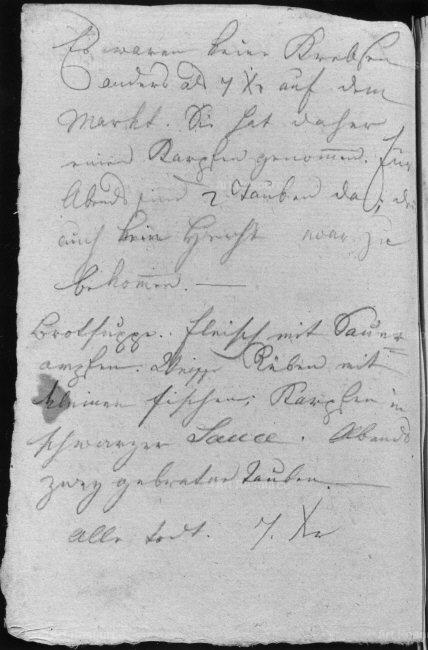 Es waren keine Krebsen
anders als 7 Xr auf dem
Markt. Sie hat daher
einen Karpfen genommen. für
Abends sind 2 Tauben da, da
auch kein Hecht war zu
bekommen. —
Brotsuppe. Fleisch mit Sauer
ampfer. Rüben mit
kleinen fischen; Karpfen in
schwarzer Sauce. Abends
zwey gebratne Tauben.
alle todt. 7. Xr